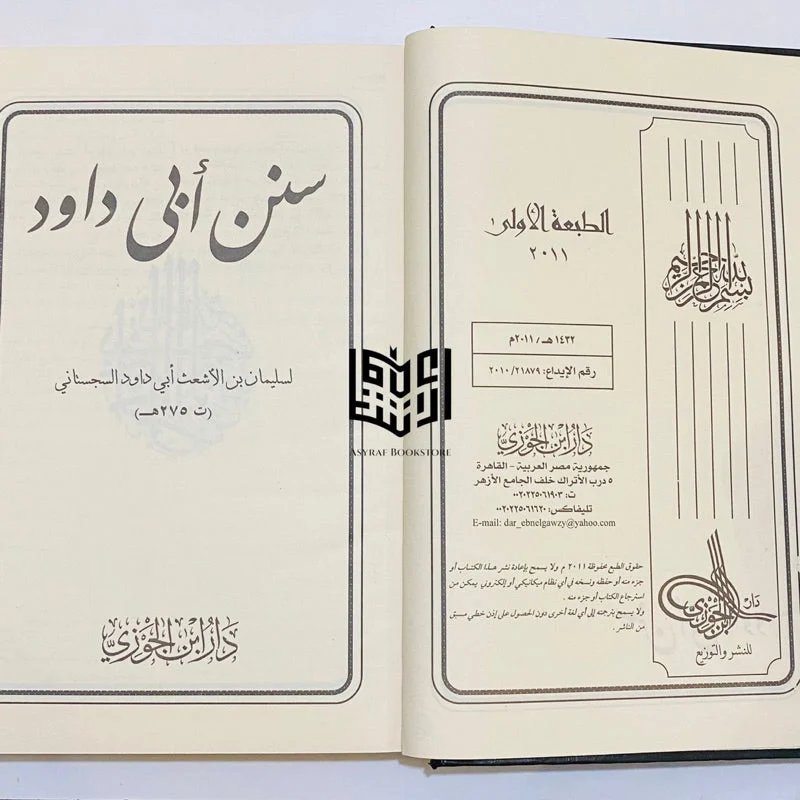 بسم الله الرحمن الرحيم
الطبعة الأولى
٢٠١١
١٤٣٢ هـ / ٢٠١١م
رقم الإيداع: ٢٠١٠/٢١٨٧٩
دار ابن الجوزي
جمهورية مصر العربية - القاهرة
٥ درب الأتراك خلف الجامع الأزهر
ت: ٠٠٢٠٢٢٥٠٦١٩٠٣
تليفاكس: ٠٠٢٠٢٢٥٠٦١٦٢٠
E-mail: dar_ebnelgawzy@yahoo.com
حقوق الطبع محفوظة ٢٠١١ م ولا يسمح بإعادة نشر هذا الكتاب أو
جزء منه أو حفظه ونسخه في أي نظام ميكانيكي أو إلكتروني يمكن من
استرجاع الكتاب أو جزء منه .
ولا يسمح بترجمته إلى أي لغة أخرى دون الحصول على إذن خطي مسبق
من الناشر .
دار
ابن الجوزي
للنشر والتوزيع
سنن أبي داود
لسليمان بن الأشعث أبي داود السجستاني
(ت ٢٧٥هـ)
دار ابن الجوزي
ASYRAF BOOKSTORE